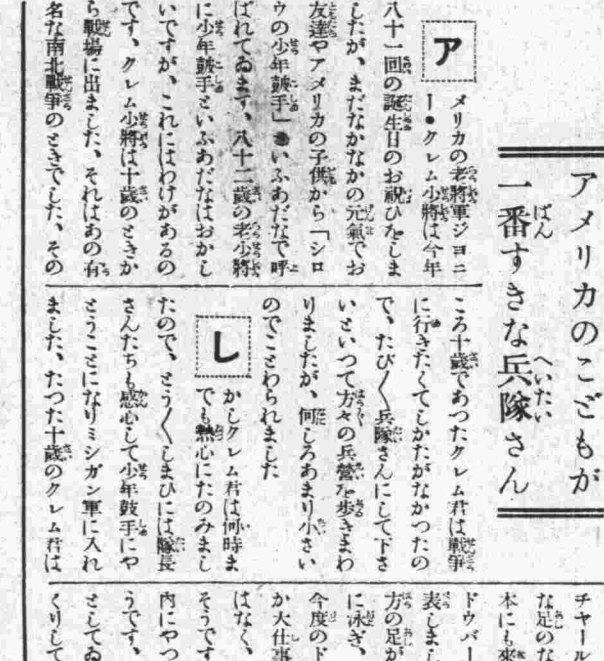 アメリカのこどもが
一番すきな兵隊さん
アメリカの老將軍ジヨニ
ー・クレム少將は今年
八十一回の誕生日のお祝ひをしま
したが、まだなかなかの元氣でお
友達やアメリカの子供から「シロ
ウの少年鼓手」といふあだなで呼
ばれてゐます、八十二歲の老少將
に少年鼓手といふあだなはおかし
いですが、これにはわけがあるの
です、クレム少將は十歲のときか
ら戰場に出ました、それはあの有
名な南北戰爭のときでした、その
ころ十歲であつたクレム君は戰爭
に行きたくてしかたがなかつたの
で、たび〳〵兵隊さんにして下さ
いといつて方々の兵營を歩きまわ
りましたが、何しろあまり小さい
のでことわられました
しかしクレム君は何時ま
でも熱心にたのみまし
たので、とう〳〵しまひには隊長
さんたちも感心して少年鼓手にや
とうことになりミシガン軍に入れ
ました、たつた十歲のクレム君は
チヤール
な足のな
本にも來
ドウバー
表しまし
方の足が
に泳ぎ、
今度のド
か大仕事
はなく、
そうです
内にやつ
うです、
としてゐ
くりして